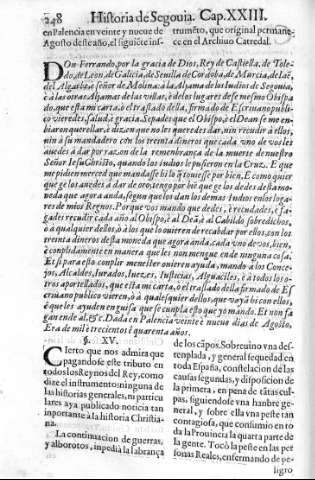 248 Historia de Segouia. Cap. XXIII.
en Palencia en veinte y nueue de
Agosto deste año, el siguiẽte ins-
trumẽto, que original permane-
ce en el Archiuo Catredal.
DOn Ferrando, por la gracia de Dios, Rey de Castiella, de Tole-
do, de Leon, de Galicia, de Seuilla de Cordoba, de Murcia, de Iaẽ,
del Algarbe, è señor de Molina: à la Aljama de los Iudios de Segouia,
è à las otras Aljamas de las villas, è de los lugares desse mesmo Obispa
do, que esta mi carta, ò el traslado della, firmado de Escriuano publi-
co vieredes, salud, è gracia. Sepades que el Obispo, è el Dean se me em-
biaron querellar, è dizen que no les queredes dar, nin recudir à ellos,
nin à su mandadero con los treinta dineros que cada vno de vos les
auedes à dar por razon de la remembranza de la muerte de nuestro
Señor Iesu Christo, quando los Iudios le pusieron en la Cruz. E que
me pidien merced que mandasse hi lo q̃ touiesse por bien. E como quier
que ge los auedes à dar de oro, tengo por biẽ que ge los dedes desta mo-
neda que agora anda, segun que los dan los demas Iudios en los loga-
res de mios Regnos. Porque vos mando que dedes, è recudades, è fa-
gades recudir cada año al Obispo, è al Deã, è al Cabildo sobredichos,
ò à qualquier dellos, ò à los que lo ouieren de recabdar por ellos, con los
treinta dineros desta moneda que agora anda, cada vno de vos, bien,
è conplidamente en manera que les non mengue ende ninguna cosa.
Et si para esto complir menester ouieren ayuda, mando à los Conce-
jos, Alcaldes, Iurados, Iuezes, Iusticias, Alguaciles, è à todos los o-
tros aportellados, que esta mi carta, ò el traslado della firmado de Es
criuano publico vieren, ò à qualesquier dellos, que vayã bi con ellos,
è que les ayuden en guisa que se cumpla esto que yo mando. Et non fa
gan ende al, &c. Dada en Palencia veinte è nueue dias de Agosto,
Era de mil è trecientos è quarenta años.
§. XV.
CIerto que nos admira que
pagandose este tributo en
todos los Reynos del Rey, como
dize el instrumento: ninguna de
las historias generales, ni particu
lares aya publicado noticia tan
importante à la historia Christia-
na.
La continuacion de guerras,
y alborotos, inpedia la labrança
de los cãpos. Sobreuino vna des-
tenplada, y general sequedad en
toda España, constelacion de las
causas segundas, y disposicion de
la primera, en pena de tãtas cul-
pas, siguiendose vna hanbre ge-
neral, y sobre ella vna peste tan
contagiosa, que consumio en to
da la Prouincia la quarta parte de
la gente. Tocò la peste en las per
sonas Reales, enfermando de pe-
ligro